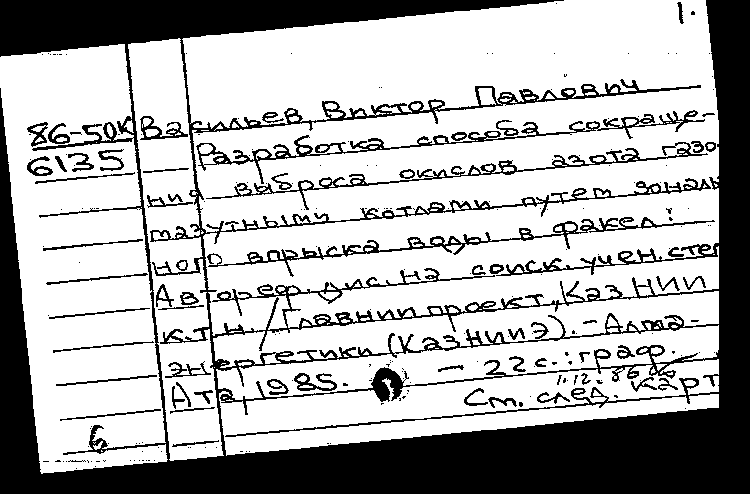 1.
86-50К Васильев, Виктор Павлович
6135 Разработка способа сокраще-
ния выброса окислов азота газо
мазутными котлами путем зональ
ного впрыска воды в факел:
Автореф. дис. на соиск. учен. степ
к.т.н. / Главниипроект, Каз НИИ
энергетики (КазНИИЭ). - Алма-
Ата, 1985. — 22 с.: граф.
1.12.86
См. след. карт
6